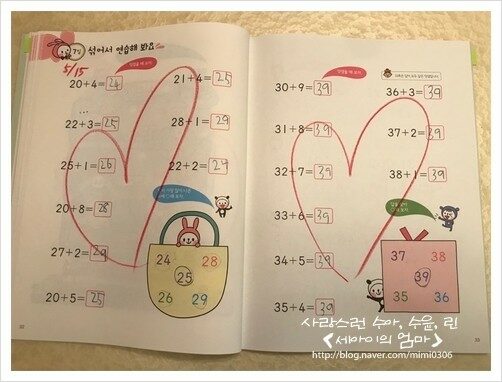 7일 섞어서 연습해 봐요
5/15
20+4=24 21+4=25
22+3=25 28+1=29
25+1=26 22+2=24
20+8=28
27+2=29
20+5=25
24 28
25
26 29
32
30+9=39 36+3=39
31+8=39 37+2=39
32+7=39 38+1=39
33+6=39
34+5=39
35+4=39
37 38
39
35 36
33
사랑스런 수아, 수윤, 린
<세아이의 엄마>
http://blog.naver.com/mimi0306